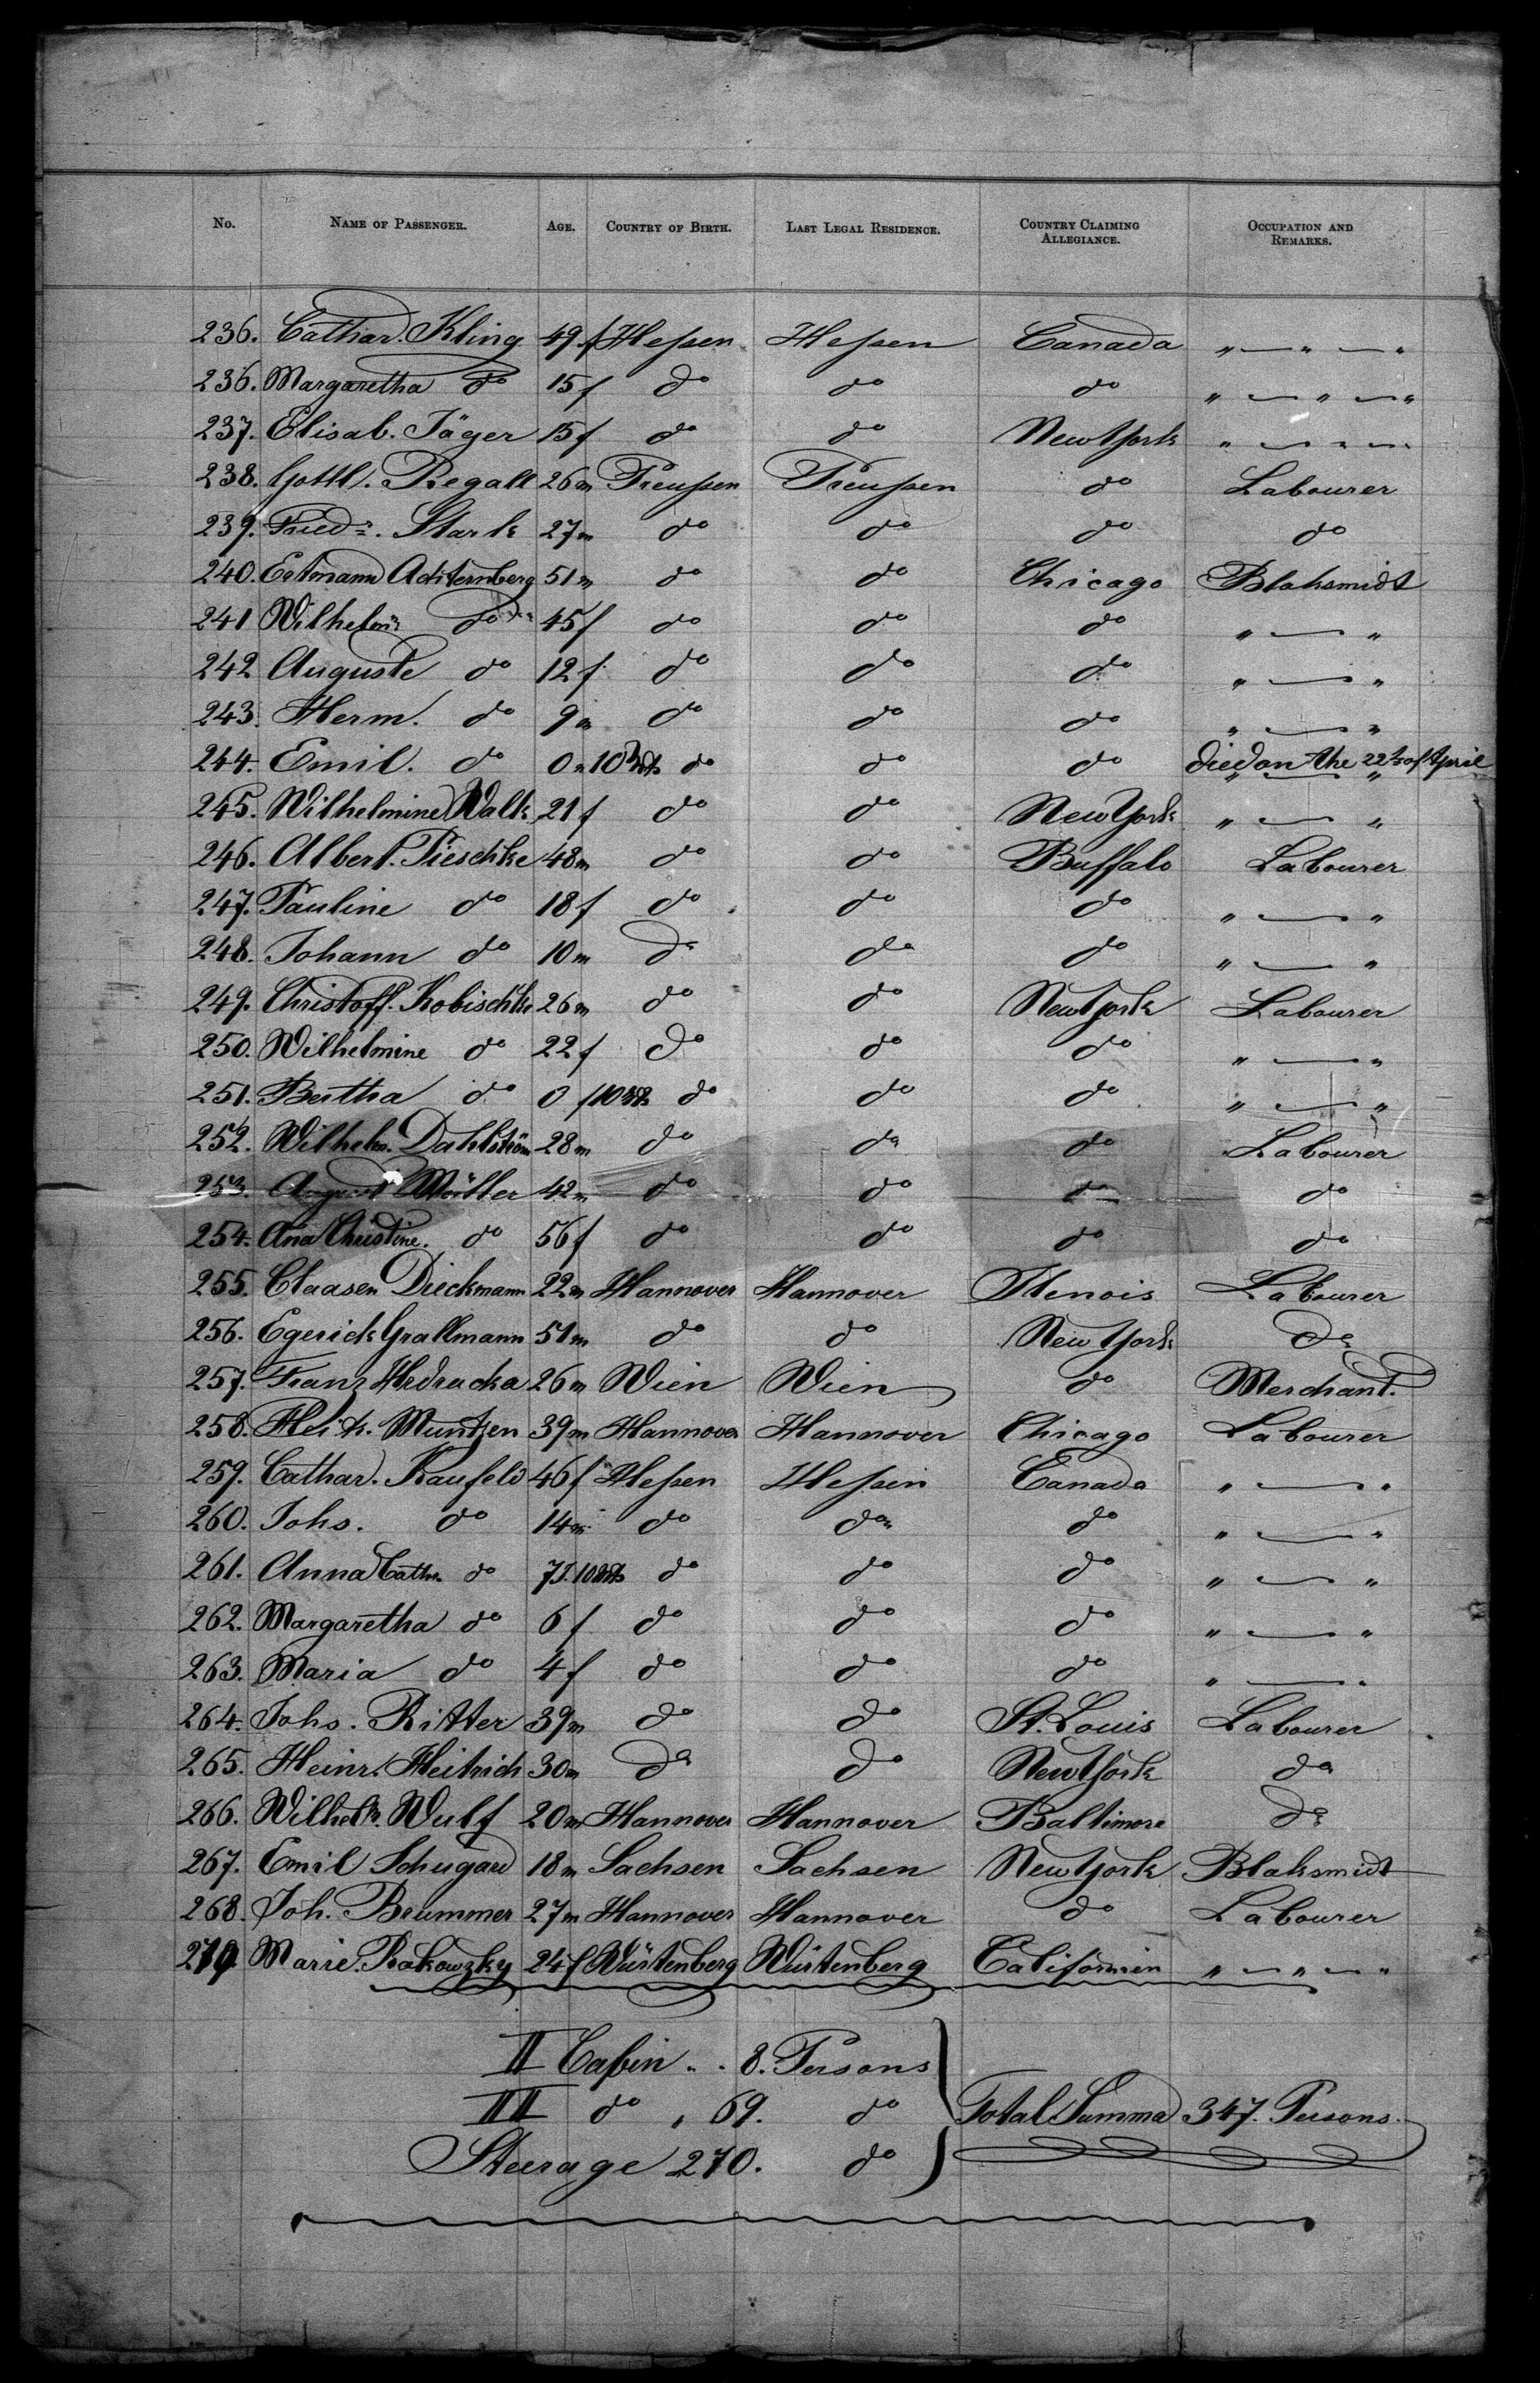 No. NAME OF PASSENGER. AGE. COUNTRY OF BIRTH. LAST LEGAL RESIDENCE. COUNTRY CLAIMING ALLEGIANCE. OCCUPATION AND REMARKS.
236. Cathar. Kling 49 f Heßen Heßen Canada " — " — "
236. Margaretha do 15 f do do do " — " — "
237. Elisab. Jäger 15 f do do New York " — " — "
238. Gottl. Regall 26 m Preußen Preußen do Labourer
239. Friedr. Stark 27 m do do do do
240. Erstmann Achternberg 51 m do do Chicago Blaksmidt
241 Wilhelm do 45 f do do do " — "
242 Auguste do 12 f do do do " — "
243. Herm. do 9 m do do do " — "
244. Emil. do 0 m 10 Mts do do do died on the 22t of April
245. Wilhelmine Walk 21 f do do New York " — "
246. Albert. Pieschke 48 m do do Buffalo Labourer
247. Pauline do 18 f do do do " — "
248. Johann do 10 m do do do " — "
249. Christoff. Kobischke 26 m do do New York Labourer
250. Wilhelmine do 22 f do do do " — "
251. Bertha do 0 f 10 Mts do do do " — "
252. Wilhelm. Dahlström 28 m do do do Labourer
253. August Möller 42 m do do do do
254. Ana Christine. do 56 f do do do do
255. Claasen Dieckmann 22 m Hannover Hannover Ilenois Labourer
256. Egerick Grallmann 51 m do do New York do
257. Franz Hedrucka 26 m Wien Wien do Merchant.
258. Heich. Muntzen 39 m Hannover Hannover Chicago Labourer
259. Cathar. Kaufeld 46 f Heßen Heßin Canada " — "
260. Johs. do 14 m do do do " — "
261. Anna Cath. do 7 J. 10 Mts do do do " — "
262. Margaretha do 6 f do do do " — "
263. Maria do 4 f do do do " — "
264. Johs. Ritter 39 m do do St. Louis Labourer
265. Heinr. Heitrich 30 m do do New York do
266. Wilhelm. Wulf 20 m Hannover Hannover Baltimore do
267. Emil Schugard 18 m Sachsen Sachsen New York Blaksmidt
268. Joh. Brummer 27 m Hannover Hannover do Labourer
270 Marie. Rakowzky 24 f Würtenberg Würtenberg Californien " — " — "
II Caßin " " 8. Persons
III do " 69. do Total Summa 347. Persons.
Steerage 270. do